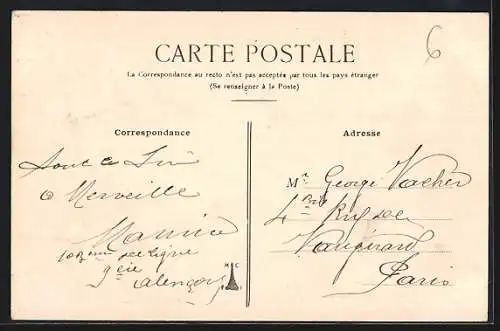 6
CARTE POSTALE
La Correspondance au recto n'est pas acceptée par tous les pays étranger
(Se renseigner à la Poste)
Correspondance
Adresse
Tout
a Merveille
Maurice
de ligne
9 eie
alençon
Mr George Vacher
4 bis Rue de
Vaugirard
Paris